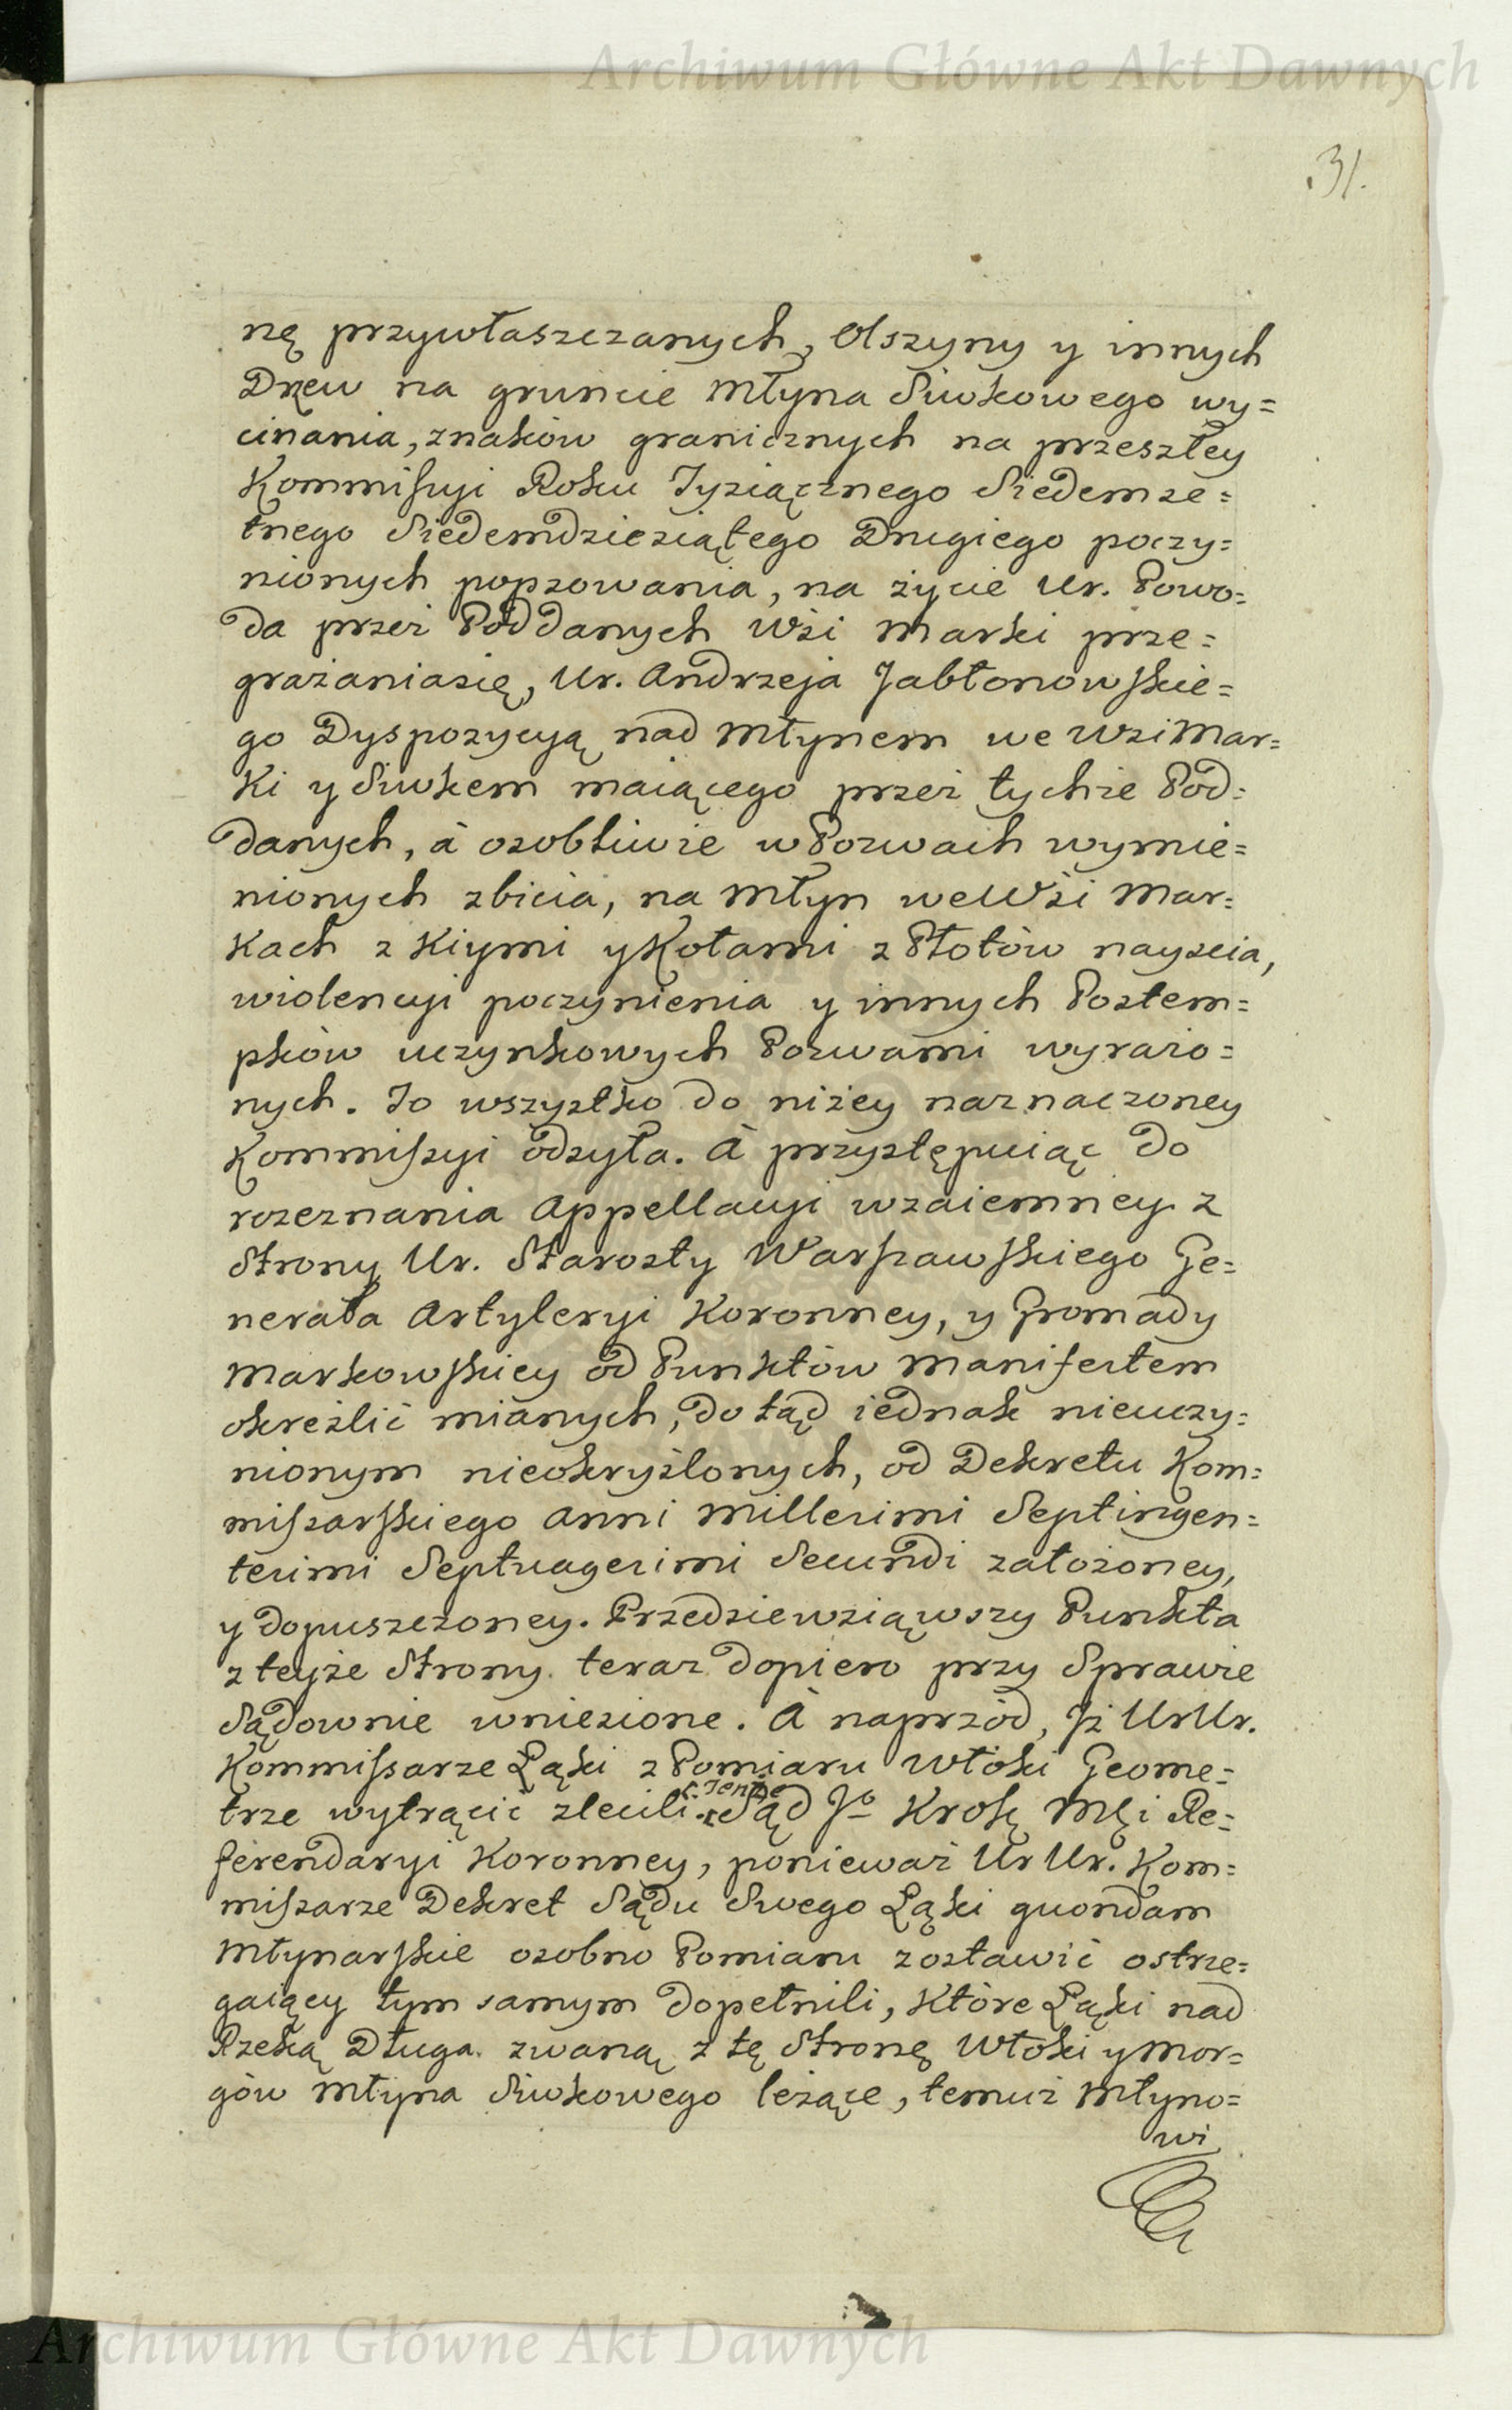 Archiwum Główne Akt Dawnych
31.
nę przywłaszczanych, Olszyny y innych
Drzew na gruncie Młyna Siwkowego wy=
cinania, znaków granicznych na przeszłey
Kommissyi Roku Tysiącznego Siedemse=
tnego Siedemdziesiątego Drugiego poczy=
nionych popsowania, na życie Ur. Powo=
da przez Poddanych Wsi Marki prze=
grażaniasię, Ur. Andrzeja Jabłonowskie=
go Dyspozycyą nad Młynem we Wsi Mar=
ki y Siwkem maiącego przez tychże Pod=
danych, à osobliwie w Pozwach wymie=
nionych zbicia, na Młyn we Wsi Mar=
kach z Kiymi y Kołami z Płotów nayscia,
wiolencyi poczynienia y innych Postem=
pków uczynkowych Pozwami wyrażo=
nych. To wszystko do niżey naznaczoney
Kommissyi odsyła. A przystępuiąc do
rozeznania Appellacyi wzaiemney z
Strony Ur. Starosty Warszawskiego Ge=
nerała Artyleryi Koronney, y Gromady
Markowskiey od Punktów Manifestem
okreslić mianych, do tąd iednak nieuczy=
nionym nieokryslonych, od Dekretu Kom=
missarskiego Anni Millesimi Septingen=
tesimi Septuagesimi Secundi założoney,
y dopuszczoney. Przedsiewziąwszy Punkta
z teyże Strony teraz dopiero przy Sprawie
Sądownie wniesione. A naprzód, Iż UrUr.
Kommissarze Łąki z Pomiaru Włoki Geome=
trze wytrącić zlecili. Tenże
Sąd J.o Krolę Mći Re=
ferendaryi Koronney, ponieważ UrUr. Kom=
missarze Dekret Sądu Swego Łąki quondam
Młynarskie osobno Pomiaru zostawić ostrze=
gaiący tym samym dopełnili, Które Łąki nad
Rzeką Długa zwaną z tę Stronę Włoki y Mor=
gów Młyna Siwkowego leżące, temuż Młyno=
wi
Archiwum Główne Akt Dawnych